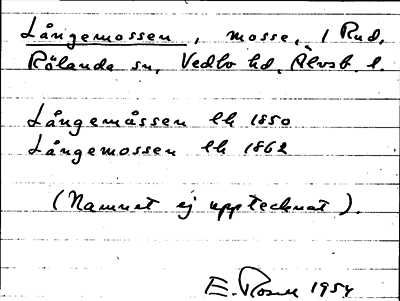 Långemossen, mosse, 1 Rud,
Rölanda sn, Vedbo hd, Älvsb. l.
Långemåssen lh 1850
Långemossen lh 1862
(Namnet ej upptecknat).
E. Rosell 1954